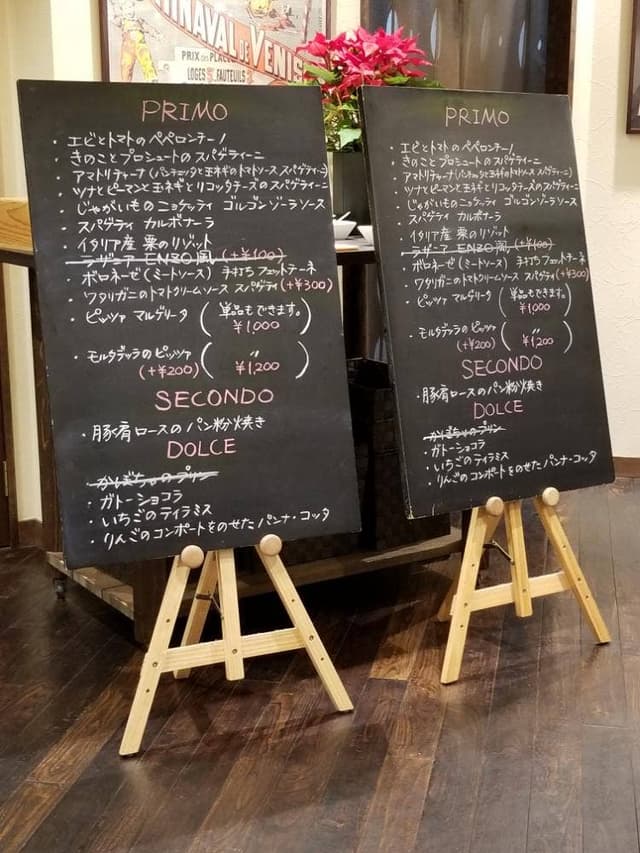 RNAVAL DE VENIS
PRIX DES PLACES
LOGES FAUTEUILS
PRIMO
・エビとトマトのペペロンチーノ
・きのことプロシュートのスパゲティーニ
・アマトリチャーナ(パンチェッタと玉ネギのトマトソース スパゲティーニ)
・ツナとピーマンと玉ネギとリコッタチーズのスパゲティーニ
・じゃがいものニョケッティ ゴルゴンゾーラソース
・スパゲティ カルボナーラ
・イタリア産 栗のリゾット
・ラザニア ENZO風 (+¥100)
・ボロネーゼ(ミートソース) 手打ちフェットチーネ
・ワタリガニのトマトクリームソース スパゲティ(+¥300)
・ピッツァ マルゲリータ (単品もできます。 ¥1,000)
・モルタデッラのピッツァ (+¥200) (〃 ¥1,200)
SECONDO
・豚肩ロースのパン粉焼き
DOLCE
・かぼちゃのプリン
・ガトーショコラ
・いちごのティラミス
・りんごのコンポートをのせたパンナ・コッタ
PRIMO
・エビとトマトのペペロンチーノ
・きのことプロシュートのスパゲティーニ
・アマトリチャーナ(パンチェッタと玉ネギのトマトソース スパゲティーニ)
・ツナとピーマンと玉ネギとリコッタチーズのスパゲティーニ
・じゃがいものニョケッティ ゴルゴンゾーラソース
スパゲティ カルボナーラ
・イタリア産 栗のリゾット
・ラザニア ENZO風 (+¥100)
・ボロネーゼ(ミートソース) 手打ちフェットチーネ
・ワタリガニのトマトクリームソース スパゲティ(+¥300)
・ピッツァ マルゲリータ (単品もできます。 ¥1,000)
・モルタデッラのピッツァ (+¥200) (〃 ¥1,200)
SECONDO
・豚肩ロースのパン粉焼き
DOLCE
・かぼちゃのプリン
・ガトーショコラ
・いちごのティラミス
・りんごのコンポートをのせたパンナ・コッタ